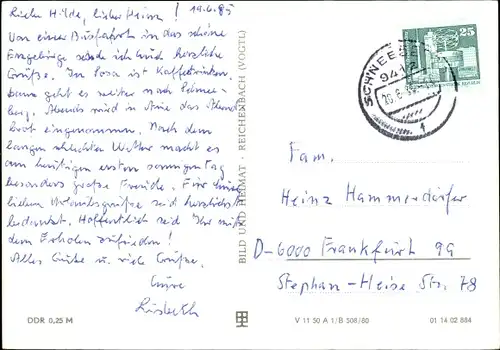 Liebe Hilde, lieber Heinz! 19.6.85
Von einer Busfahrt in das schöne
Erzgebirge sende ich Euch herzliche
Grüße. In Sosa ist Kaffeetrinken,
dann geht es weiter nach Schnee-
berg. Abends wird in Aue das Abend
brot eingenommen. Nach dem
langen schlechten Wetter macht es
am heutigen ersten sonnigen Tag
besonders große Freude. Für Eure
lieben Urlaubsgrüße seid herzlichst
bedankt. Hoffentlich seid Ihr mit
dem Erholen zufrieden!
Alles Gute u. viele Grüße,
Eure
Lisbeth
DDR 0,25 M
BILD UND HEIMAT · REICHENBACH (VOGTL)
SCHNEEBERG
9412
25
Fam.
Heinz Hammerdörfer
D-6000 Frankfurt 99
Stephan-Heise Str. 78
V 11 50 A 1/B 508/80 01 14 02 884